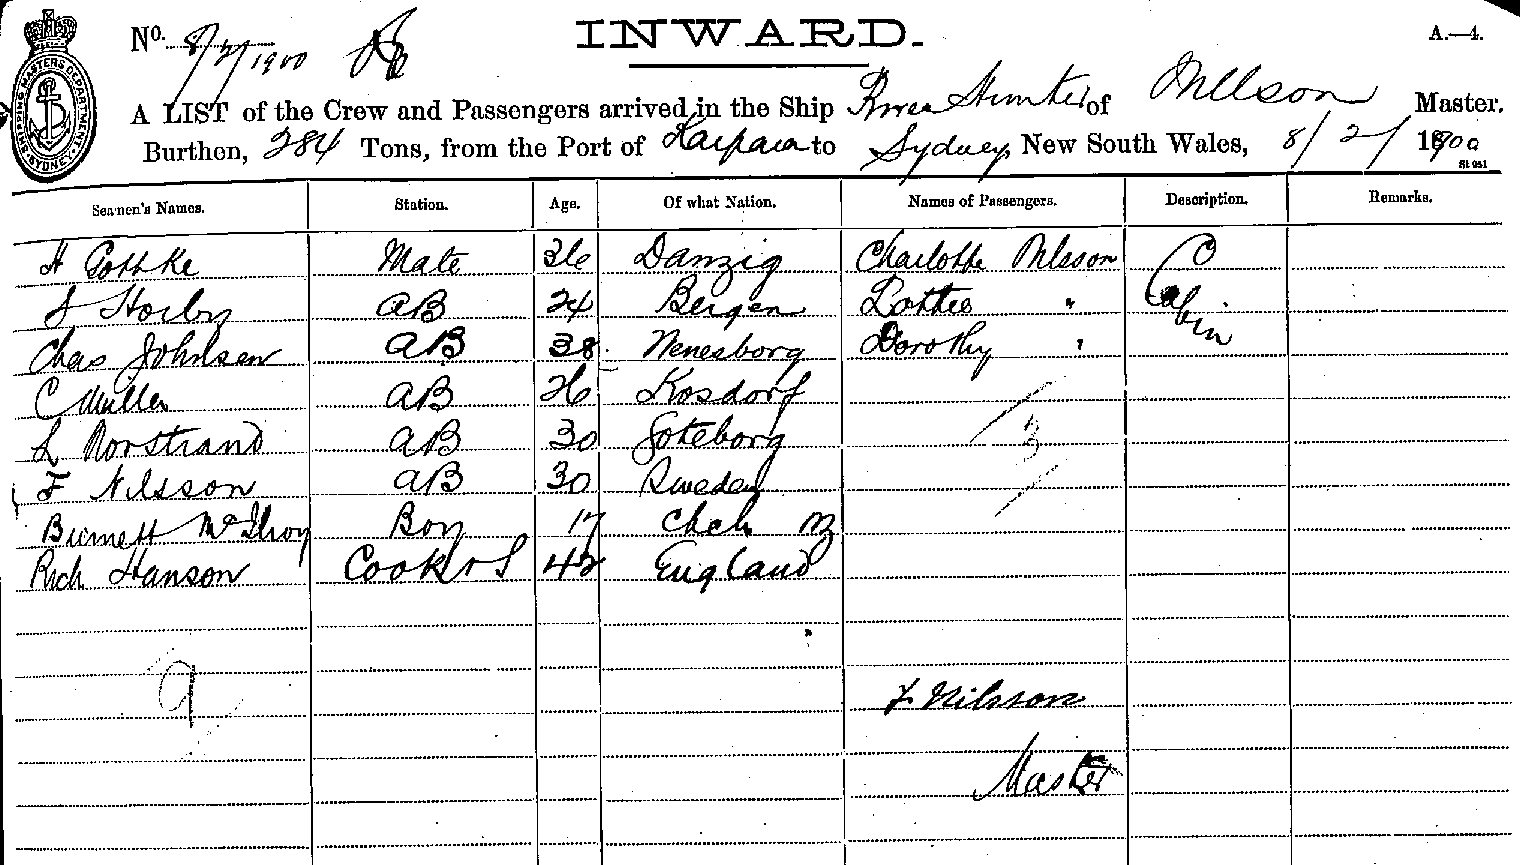 No. 8/2/1900
INWARD.
A.—4.
A LIST of the Crew and Passengers arrived in the Ship River Hunter of Nilsson Master.
Burthen, 284 Tons, from the Port of Kaipara to Sydney, New South Wales, 8/2/1900
SHIPPING MASTERS DEPARTMENT SYDNEY
Seamen's Names. Station. Age. Of what Nation. Names of Passengers. Description. Remarks.
H Gottke Mate 36 Danzig Charlotte Nilsson Cabin
AB 24 Bergen Lottie "
Chas Johnsen AB 38 Wenesborg Dorothy "
C Muller AB 26 Kosdorf
L Norstrand AB 30 Goteborg 3
F Nilsson AB 30 Sweden
Burnett McIlroy Boy 17
Rich Hanson Cook & S 42 England
9
F Nilsson
Master